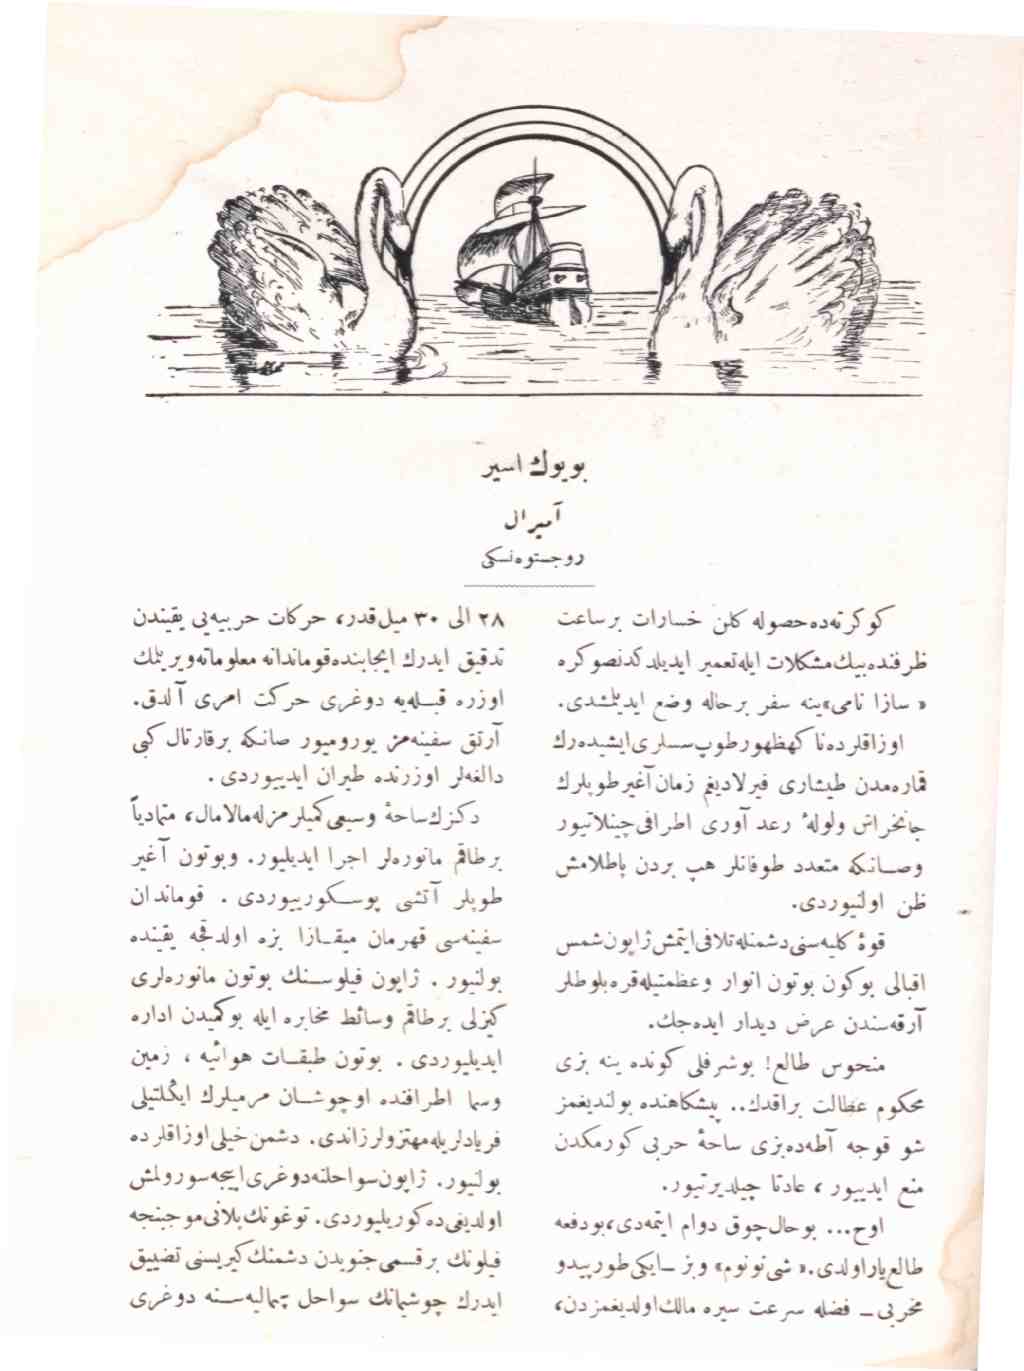 بویوك اسیر
آمیرال
روجستوه‌نسکی
کوکرته‌ده‌حصوله کلن خسارات بر ساعت
ظرفنده‌بیك‌مشکلات ایله‌تعمیر ایدیلدکدنصوکره
« سازا نامی»ینه سفر برحاله وضع ایدیلمشدی.
اوزاقلرده‌ناکهظهورطوپ‌سسلری‌ایشیده‌رك
قماره‌مدن طیشاری فیرلادیغم زمان‌آغیرطوپلرك
جانخراش ولوله‌ٔ رعد آوری اطرافی‌چینلاتیور
وصانکه متعدد طوفانلر هپ بردن پاطلامش
ظن اولنیوردی.
قوهٔ کلیه‌سنی‌دشمنله‌تلافی‌ایتمش‌ژاپون‌شمس
اقبالی بوکون بوتون انوار وعظمتیله‌قره‌بلوطلر
آرقه‌سندن عرض دیدار ایده‌جك.
منحوس طالع! بوشرفلی کونده ینه بزی
محکوم عطالت براقدك.. پیشکاهنده بولندیغمز
شو قوجه آطه‌ده‌بزی ساحهٔ حربی کورمکدن
منع ایدییور ، عادتا چیلدیرتیور.
اوح... بوحال‌چوق دوام ایتمه‌دی،بودفعه
طالع‌یاراولدی.« شی‌نونوم» وبز ـ‌ایکی‌طورپیدو
مخربی ـ فضله سرعت سیره مالك‌اولدیغمزدن،
۲۸ الی ۳۰ میل‌قدر، حرکات حربیه‌یی یقیندن
تدقیق ایدرك ایجابنده‌قومندانه معلوماته‌ویرلمك
اوزره قبله‌یه دوغری حرکت امری آلدق.
آرتق سفینه‌مز یورومیور صانکه برقارتال کبی
دالغه‌لر اوزرنده طیران ایدییوردی .
دکزك‌ساحهٔ وسیعی‌کمیلرمزله‌مالامال، متمادیاً
برطاقم مانوره‌لر اجرا ایدیلیور. وبوتون آغیر
طوپلر آتشی پوسکورییوردی . قوماندان
سفینه‌سی قهرمان میقـازا بزه اولدقجه یقینده
بولنیور . ژاپون فیلوسنك بوتون مانوره‌لری
کیزلی برطاقم وسائط مخابره ایله بوکمیدن اداره
ایدیلیوردی . بوتون طبقـات هوائیه ، زمین
وسما اطرافنده اوچوشـان مرمیلرك ایکلتیلی
فریادلریله‌مهتزولرزاندی. دشمن‌خیلی‌اوزاقلرده
بولنیور. ژاپون‌سواحلنه‌دوغری‌ایجه‌سورولمش
اولدیغی‌ده‌کوریلیوردی. توغونك‌پلانی‌موجبنجه
فیلونك برقسمی‌جنوبدن دشمنك‌کیریسنی تضییق
ایدرك چوشیمانك سواحل شمالیه‌سـنه دوغری